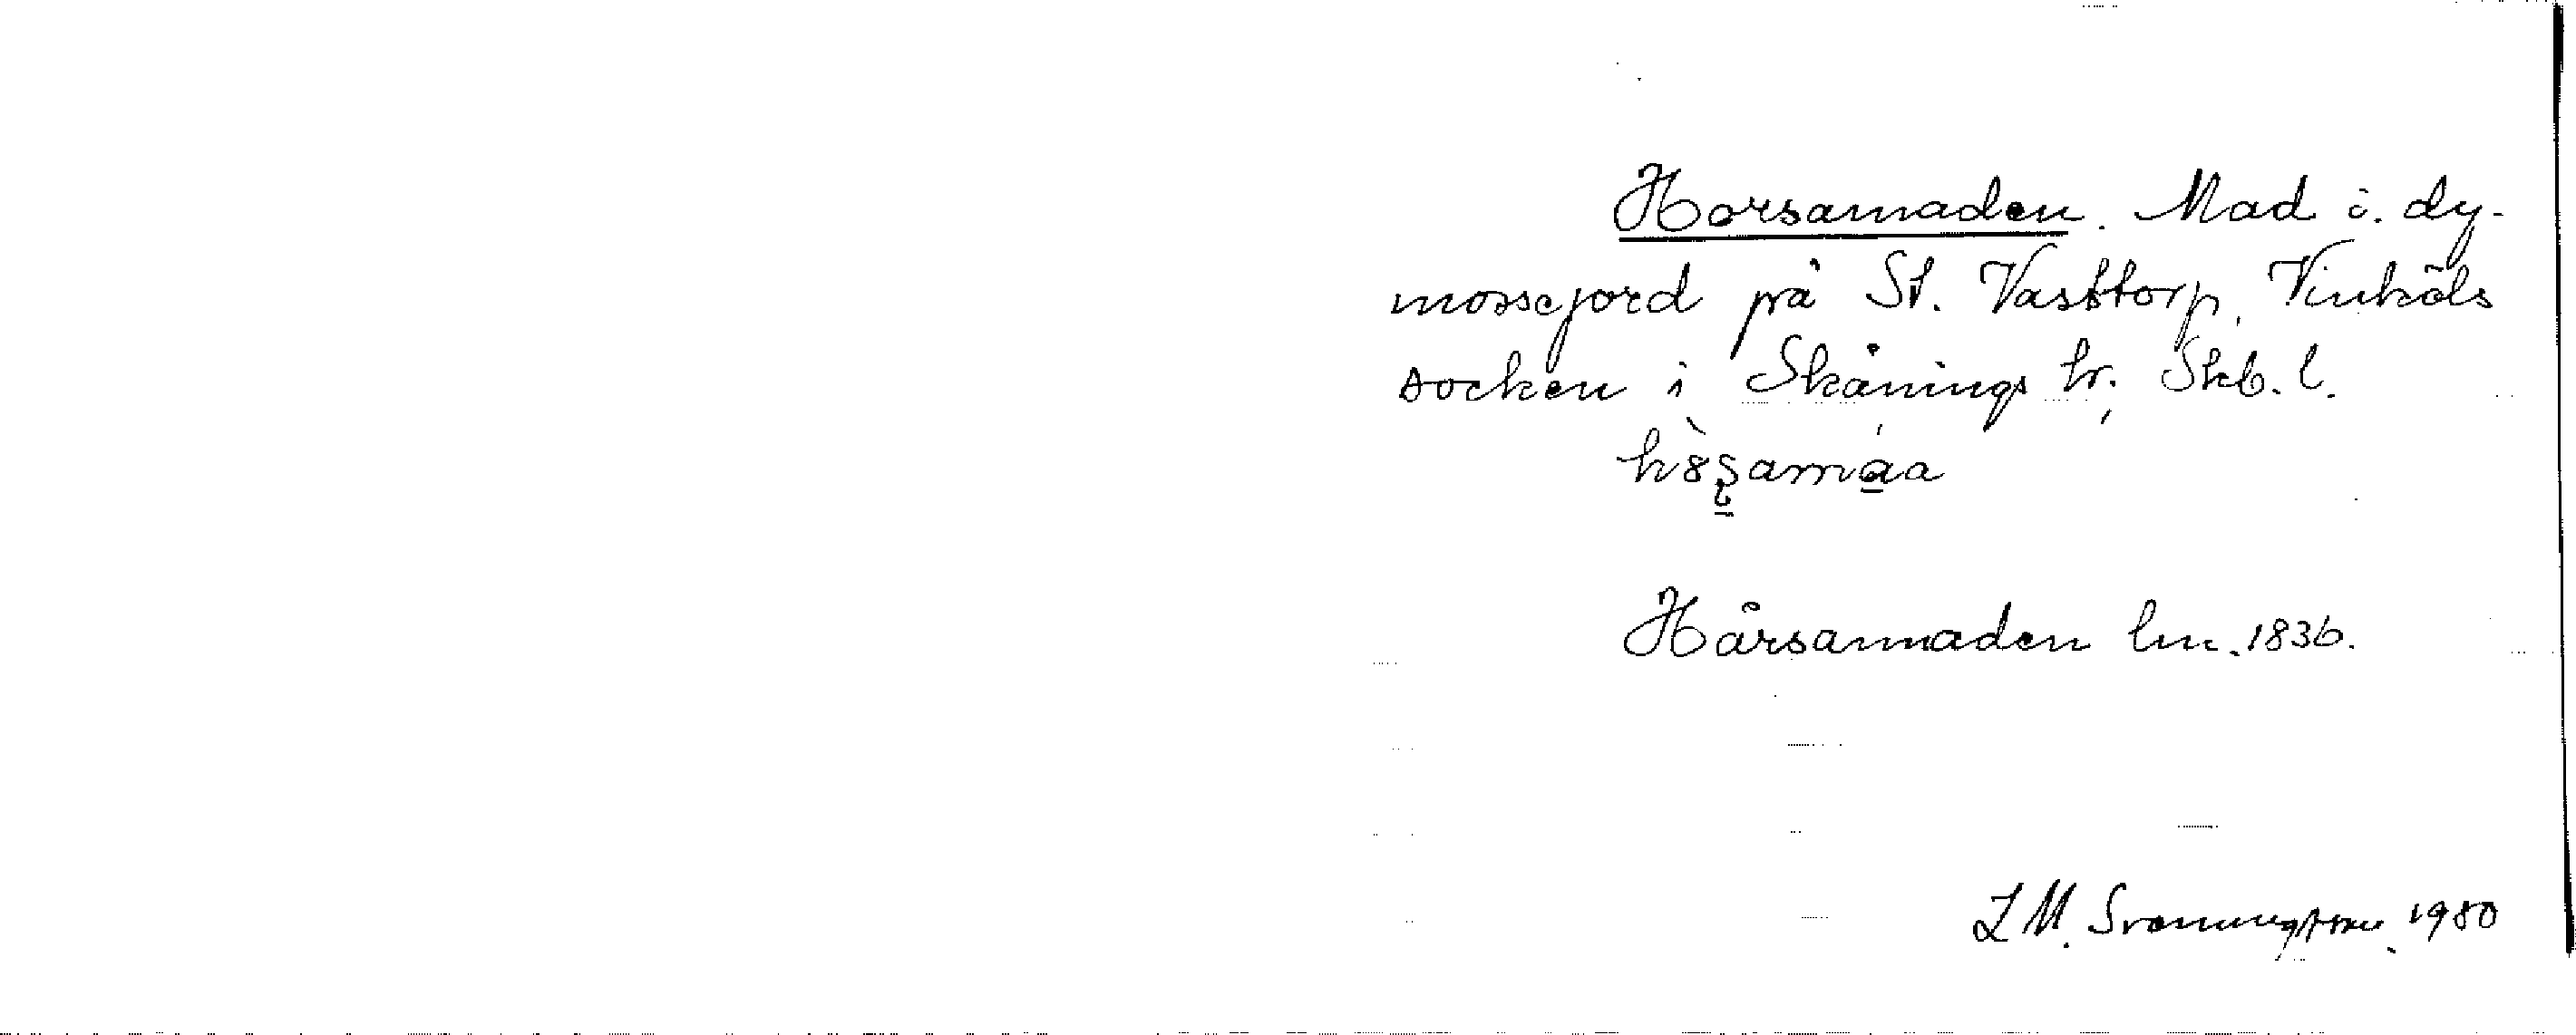 Horsamaden. Mad i dy-
mossejord på St. Vasttorp, Vinköls
socken i Skånings hr, Skb. l.
Hårsamaden lm. 1836.
L M. Svenningsson 1980